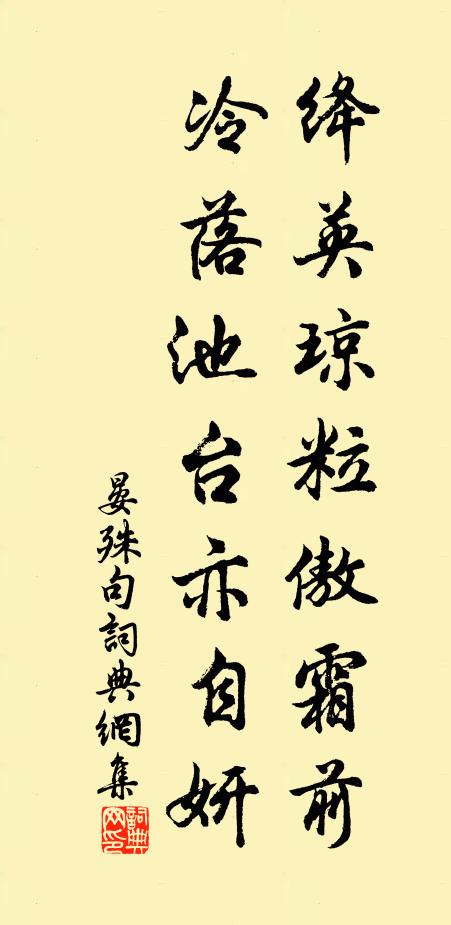 绛英琼粒傲霜前
冷落池台亦自妍
晏殊句詞典網集
詞典网印